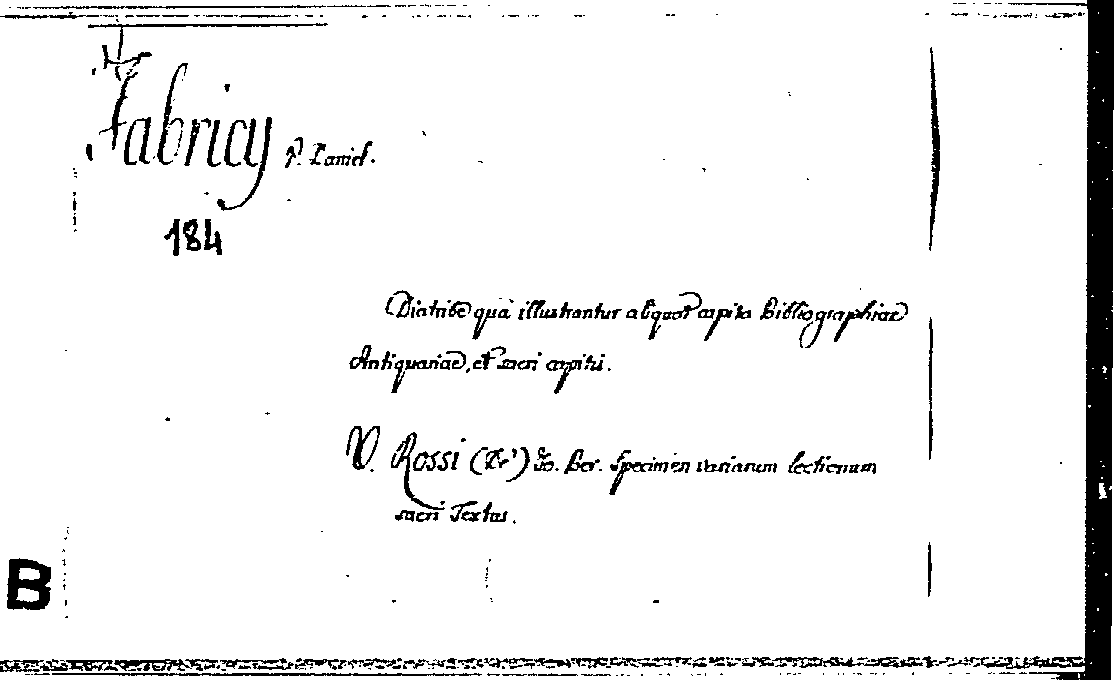 Fabricy P. Daniel.
184
Diatribe quâ illustrantur aliquot capita Bibliographiae
Antiquariae, et sacri capitis.
V. Rossi (De') Jo. Ber. Specimen variarum lectionum
sacri Textus.
B